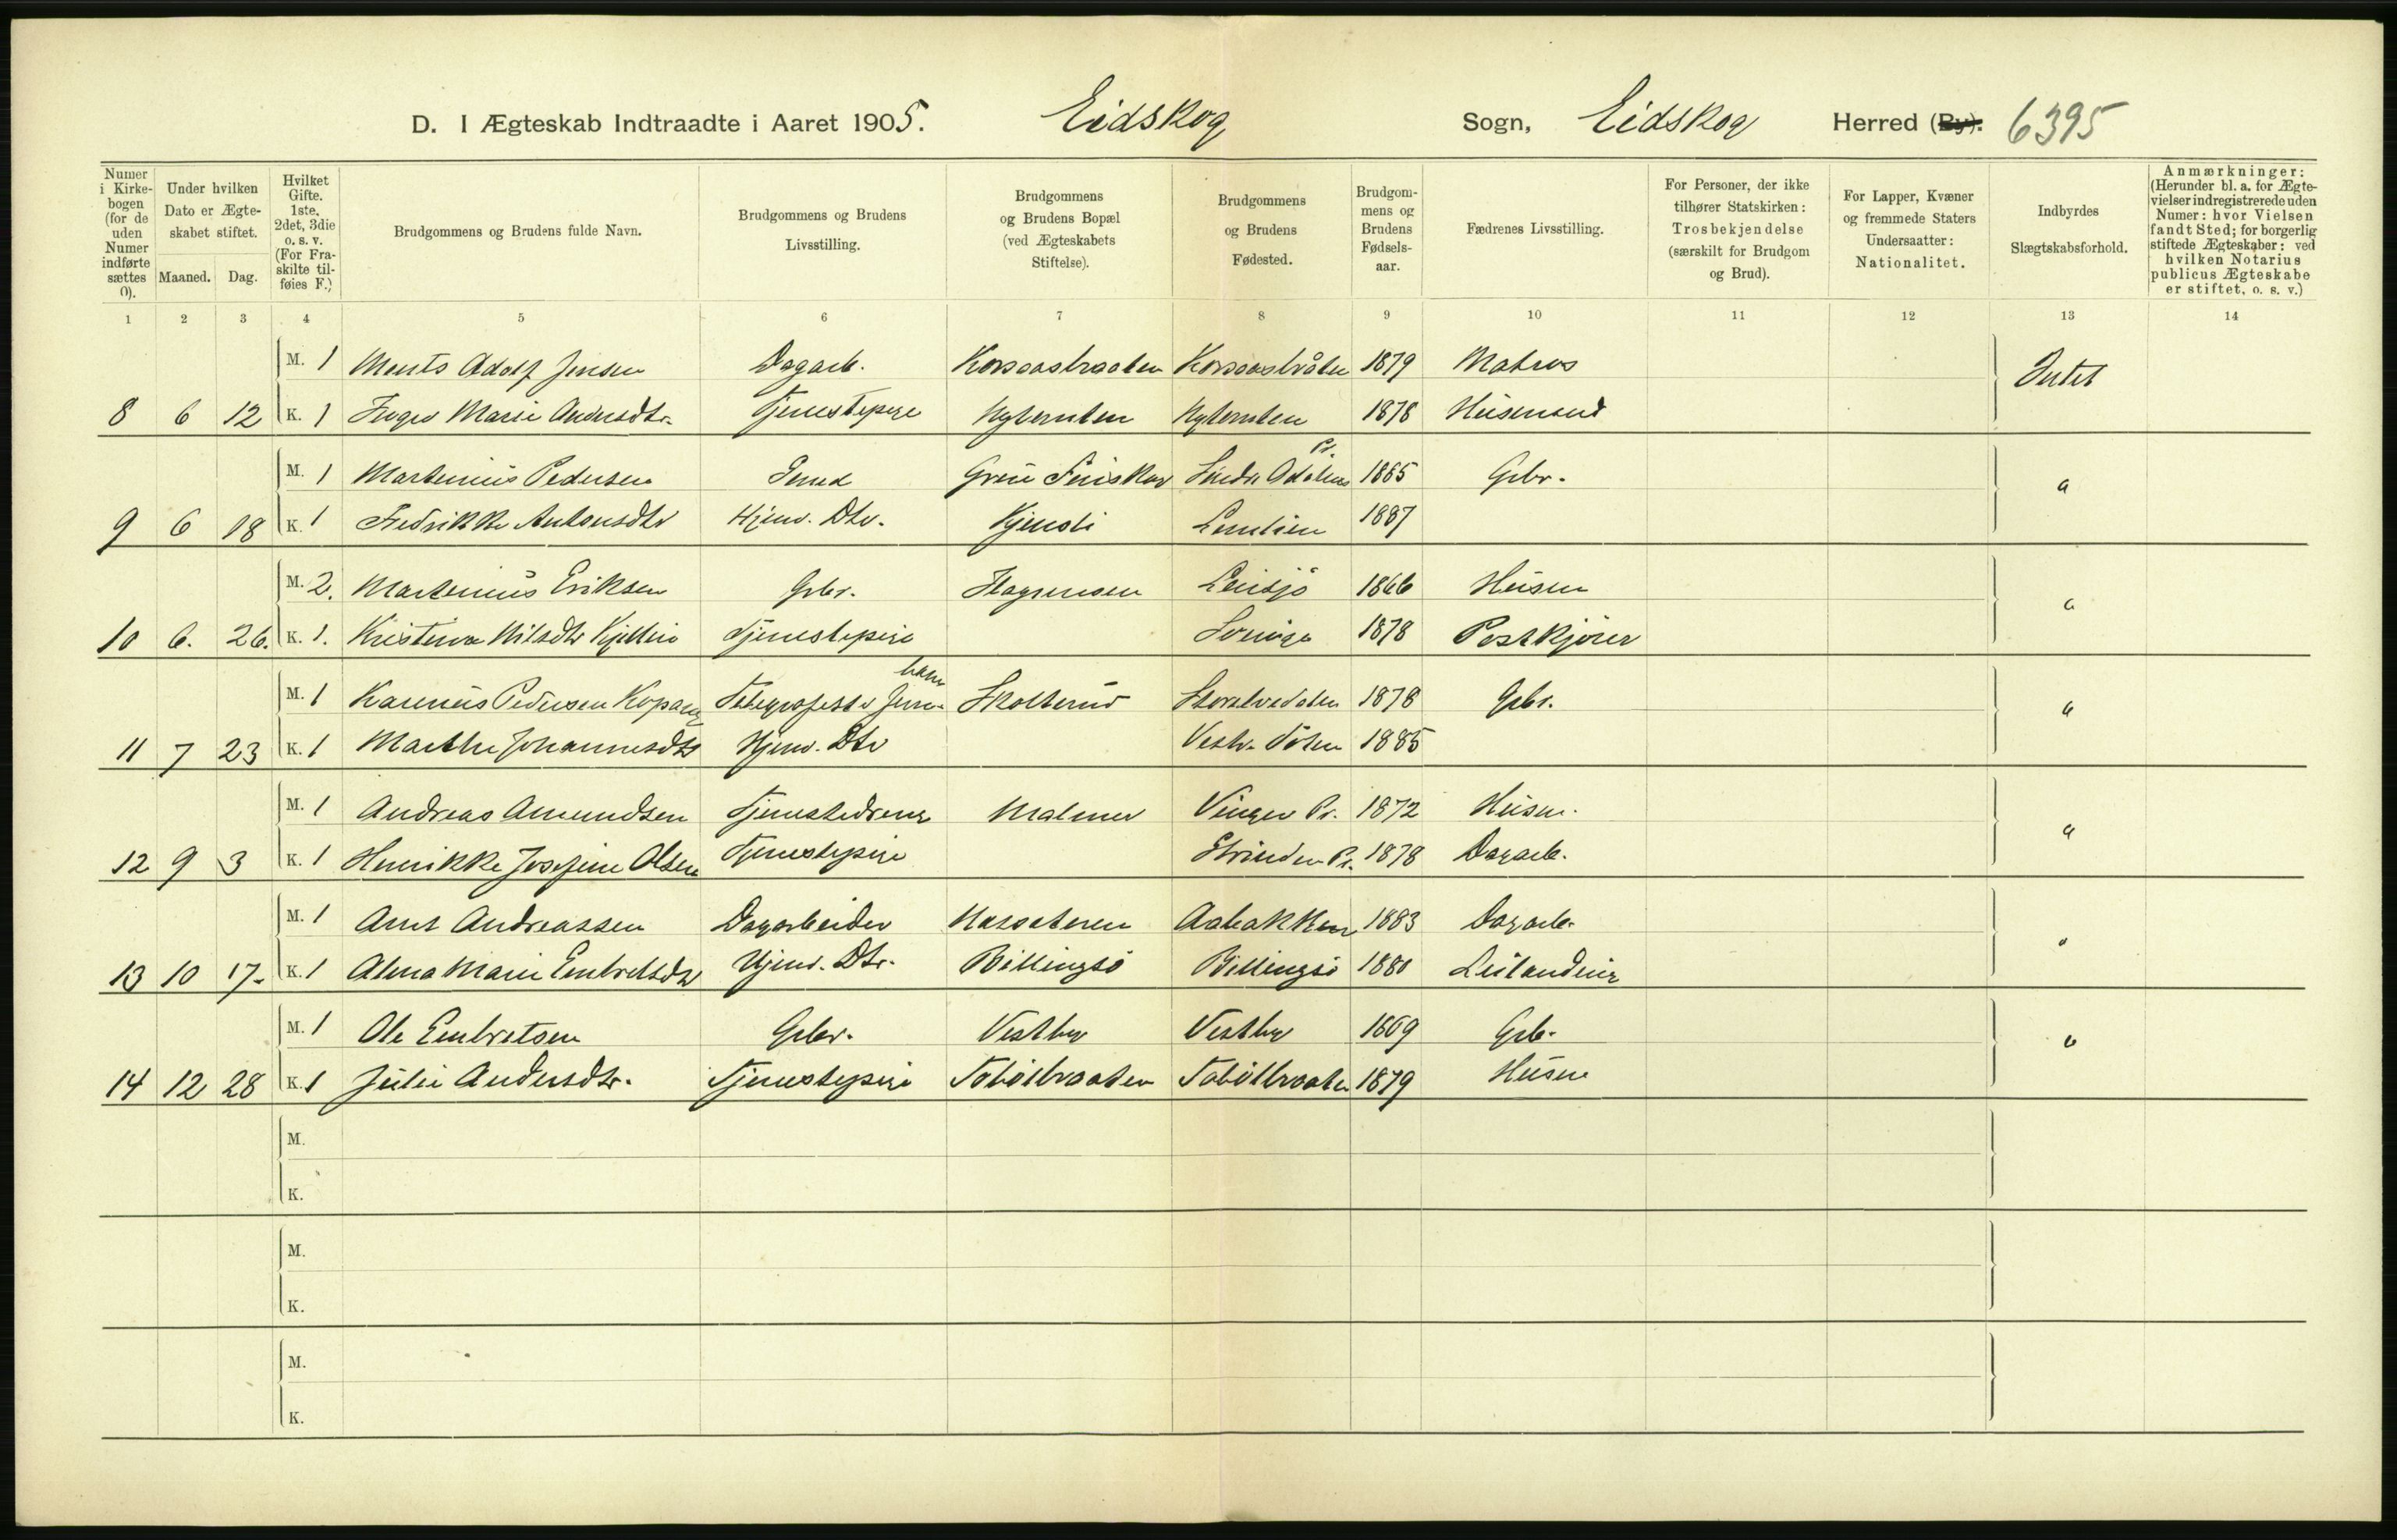 D. I Ægteskab Indtraadte i Aaret 1905. Eidskog Sogn, Eidskog Herred (By). 6395
Numer i Kirkebogen (for de uden Numer indførte sættes 0).
Under hvilken Dato er Ægteskabet stiftet.
Maaned. Dag.
Hvilket Gifte. 1ste, 2det, 3die o. s. v. (For Fraskilte tilføies F.)
Brudgommens og Brudens fulde Navn.
Brudgommens og Brudens Livsstilling.
Brudgommens og Brudens Bopæl (ved Ægteskabets Stiftelse).
Brudgommens og Brudens Fødested.
Brudgommens og Brudens Fødselsaar.
Fædrenes Livsstilling.
For Personer, der ikke tilhører Statskirken: Trosbekjendelse (særskilt for Brudgom og Brud).
For Lapper, Kvæner og fremmede Staters Undersaatter: Nationalitet.
Indbyrdes Slægtskabsforhold.
Anmærkninger: (Herunder bl. a. for Ægtevielser indregistrerede uden Numer: hvor Vielsen fandt Sted; for borgerlig stiftede Ægteskaber: ved hvilken Notarius publicus Ægteskabe er stiftet, o. s. v.)
1 2 3 4 5 6 7 8 9 10 11 12 13 14
M. 1 Adolf Jensen Dagarb. Korsaasbraaten Korsaasbråten 1879 Matros Intet
8 6 12 K. 1 Inger Marie Andersdtr. Tjenestepige 1878 Husmand
M. 1 Martinius Pedersen Smed Pr. 1885 Gbr. "
9 6 18 K. 1 Fredrikke Antonsdtr Hjemv. Dtr. 1887
M. 2. Martinius Eriksen Gbr. 1866 Husm "
10 6. 26. K. 1. Tjenestepige 1878 Postkjører
M. 1 Karinius Pedersen Kopang Skotterud 1878 Gbr. "
11 7 23 K. 1 Marthe Johannesdtr Hjemv. Dtr 1885
M. 1 Andreas Amundsen Tjenestedreng Malmer Vinger Pr. 1872 Husm. "
12 9 3 K. 1 Henrikke Josefine Olsen Tjenestepige Strinden Pr. 1878 Dagarb.
M. 1 Arnt Andreassen Dagarbeider Aabakken 1883 Dagarb. "
13 10 17. K. 1 Alma Marie Embretsdtr Hjemv. Dtr. Billingsö Billingsö 1880 Leilending
M. 1 Ole Embretsen Gbr. Vestby Vestby 1869 Gb. "
14 12 28 K. 1 Julie Andersdtr. Tjenestepige Tobölbraaten Tobölbraaten 1879 Husm
M.
K.
M.
K.
M.
K.